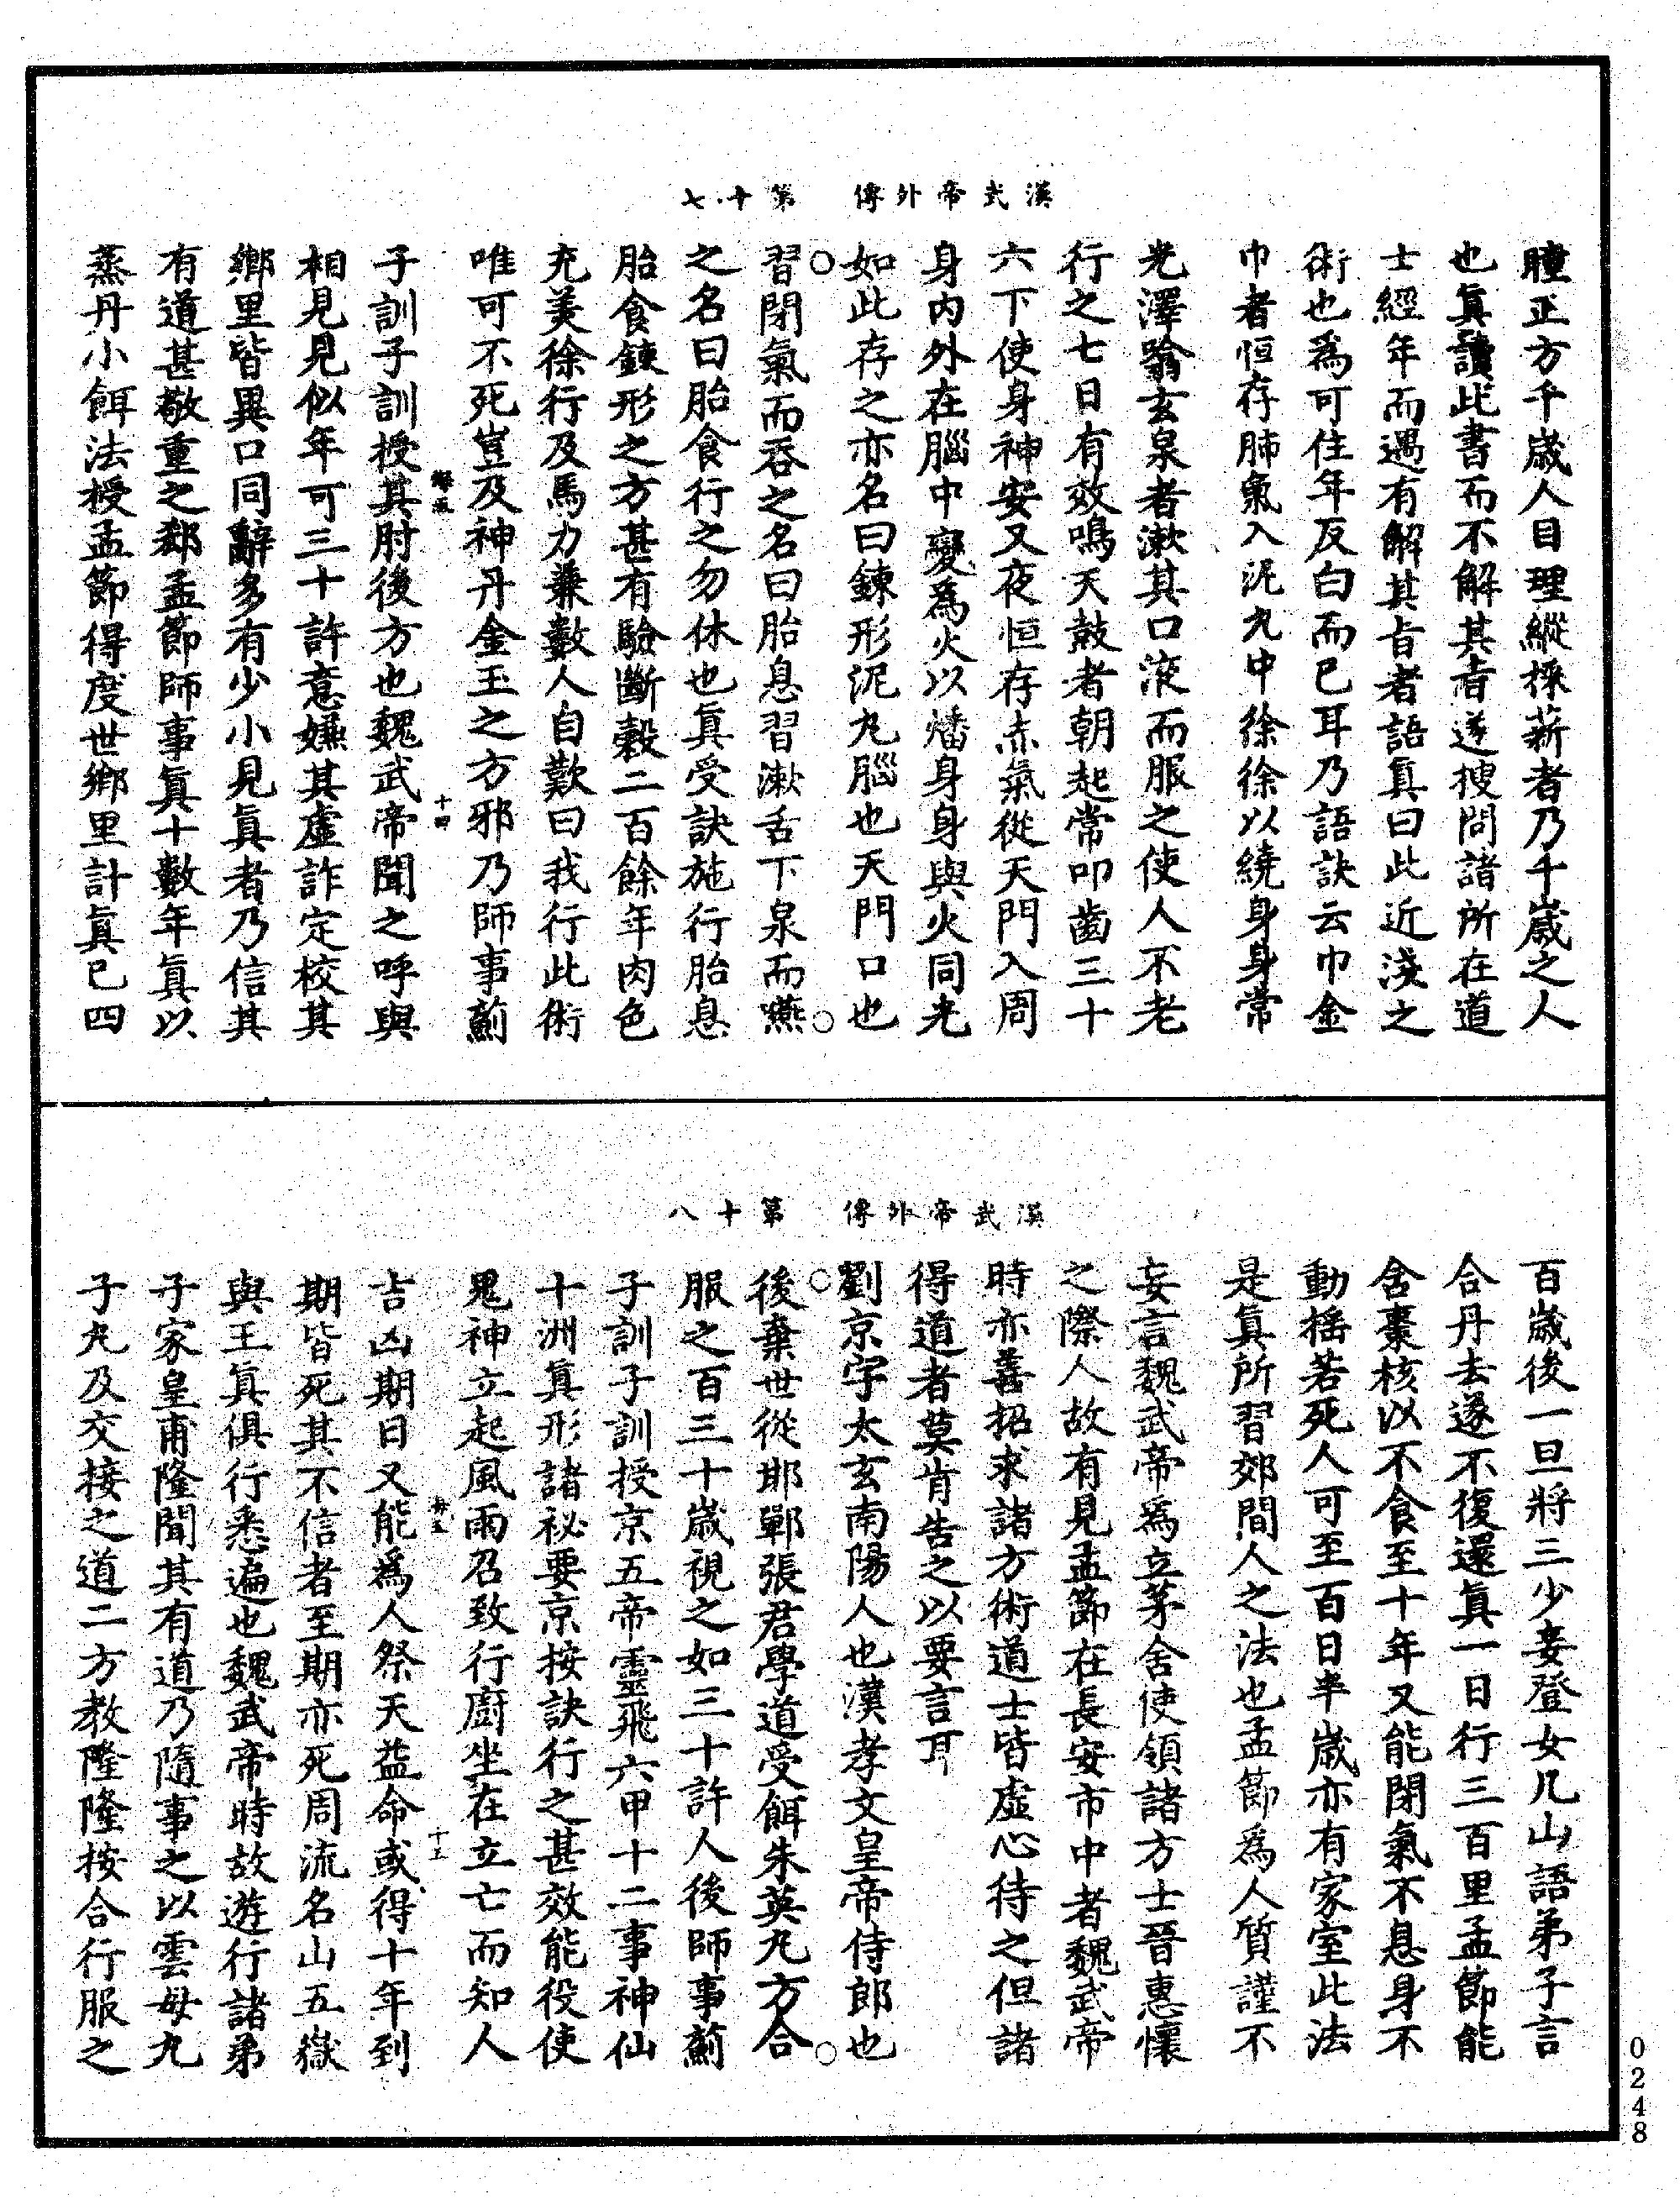 漢武帝外傳　第十七
瞳正方千歲人目理縱採薪者乃千歲之人
也眞讀此書而不解其旨遂搜問諸所在道
士經年而遇有解其旨者語眞曰此近淺之
術也爲可住年反白而已耳乃語訣云巾金
巾者恒存肺氣入泥丸中徐徐以繞身身常
光澤踰玄泉者漱其口液而服之使人不老
行之七日有效鳴天鼓者朝起常叩齒三十
六下使身神安又夜恒存赤氣從天門入周
身內外在腦中變爲火以燔身身與火同光
如此存之亦名曰鍊形泥丸腦也天門口也
習閉氣而吞之名曰胎息習漱舌下泉而嚥
之名曰胎食行之勿休也眞受訣施行胎息
胎食鍊形之方甚有驗斷穀二百餘年肉色
充美徐行及馬力兼數人自歎曰我行此術
唯可不死豈及神丹金玉之方邪乃師事薊
十四
子訓子訓授其肘後方也魏武帝聞之呼與
相見見似年可三十許意嫌其虛詐定校其
鄉里皆異口同辭多有少小見眞者乃信其
有道甚敬重之郄孟節師事眞十數年眞以
蒸丹小餌法授孟節得度世鄉里計眞已四
漢武帝外傳　第十八
百歲後一旦將三少妾登女几山語弟子言
合丹去遂不復還眞一日行三百里孟節能
含棗核以不食至十年又能閉氣不息身不
動搖若死人可至百日半歲亦有家室此法
是眞所習郊間人之法也孟節爲人質謹不
妄言魏武帝爲立茅舍使領諸方士晉惠懷
之際人故有見孟節在長安市中者魏武帝
時亦善招求諸方術道士皆虛心待之但諸
得道者莫肯告之以要言耳
劉京字太玄南陽人也漢孝文皇帝侍郎也
後棄世從邯鄲張君學道受餌朱英丸方合
服之百三十歲視之如三十許人後師事薊
子訓子訓授京五帝靈飛六甲十二事神仙
十洲眞形諸祕要京按訣行之甚效能役使
鬼神立起風雨召致行廚坐在立亡而知人
十五
吉凶期日又能爲人祭天益命或得十年到
期皆死其不信者至期亦死周流名山五嶽
與王眞俱行悉遍也魏武帝時故遊行諸弟
子家皇甫隆聞其有道乃隨事之以雲母九
子丸及交接之道二方教隆隆按合行服之
0248